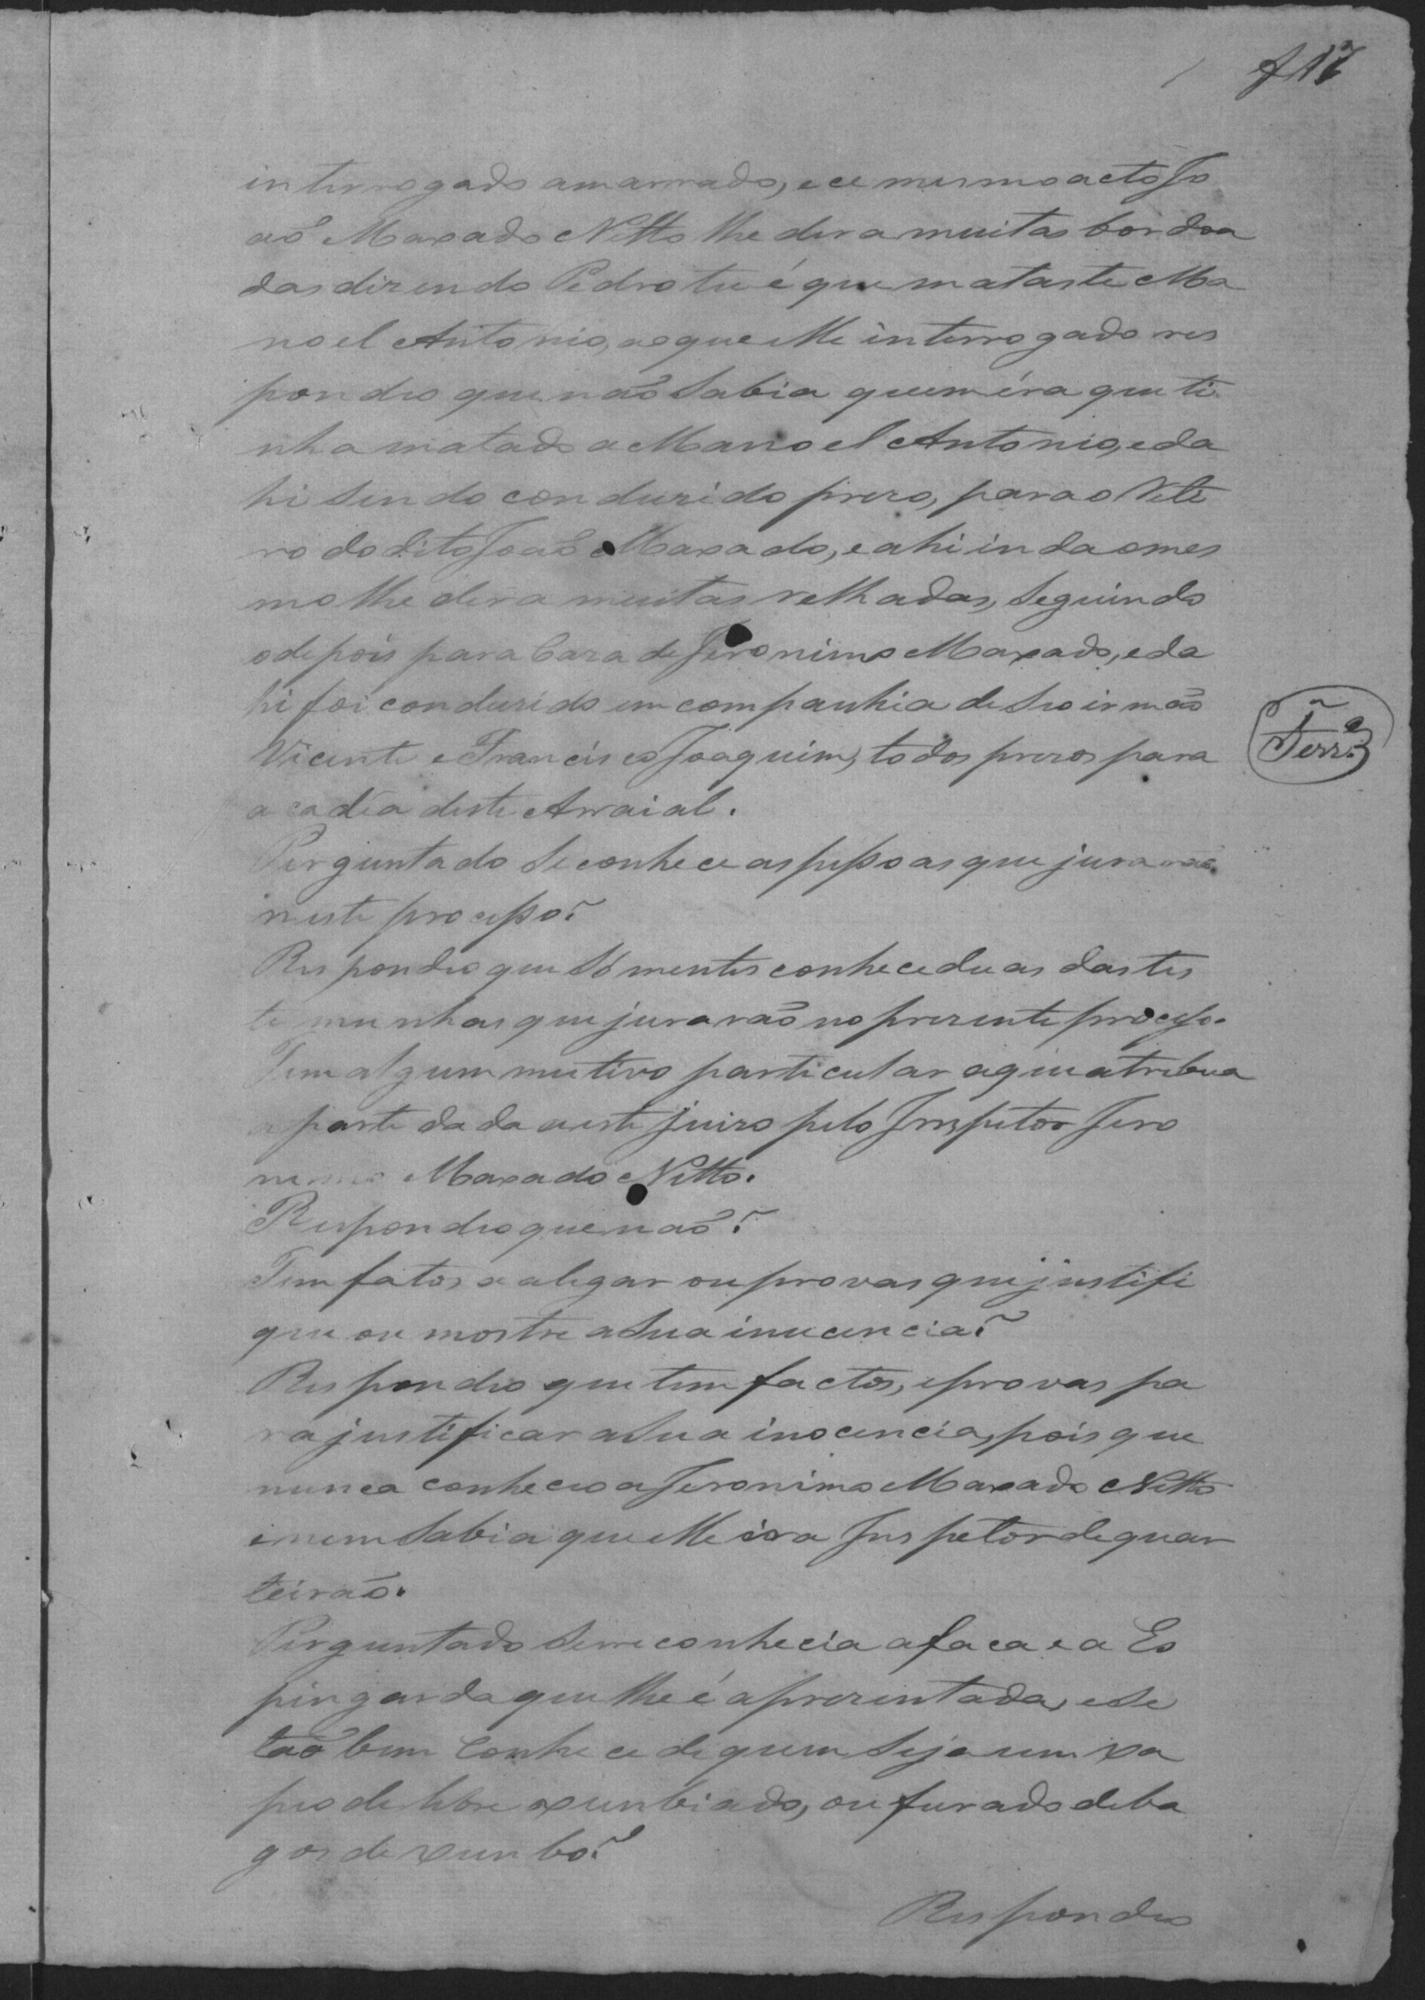 f 17
interrogado amarrado, e ce mesmo acto Jo
aõ Maxado Netto lhe dera muitas bordoa
das dizendo Pedro tu é que mataste Ma
noel Antonio, ao que elle interrogado res
pondeo que naõ sabia quem éra que ti
nha matado a Manoel Antonio, e da
hi sendo conduzido prezo, para o Reti
ro do dito Joaõ Maxado, e ahi inda o mes
mo lhe dera muitas relhadas, seguindo
o depois para Caza de Jeronimo Maxado, e da
hi foi conduzido em companhia de seo irmaõ
Vicente e Francisco Joaquim, todos prezos para
a cadêa deste Arraial.
Ferr.ª
Perguntado se conhece as pessoas que juraraõ
neste processo?
Respondeo que sómentes conhece duas das tes
temunhas que juraraõ no prezente processo.
Tem algum mutivo particular a que atribua
a parte dada a este juizo pelo Inspetor Jero
nimo Maxado Netto.
Respondeo que naõ?
Tem fatos a alegar ou provas que justifi
que ou mostre a sua inucencia?
Respondeo que tem factos, e provas pa
ra justificar a sua inocencia, pois que
nunca conheceo a Jeronimo Maxado Netto
e nem sabia que elle éra Inspetor de quar
teiraõ.
Perguntado se reconhecia a faca e a Es
pingarda que lhe é aprezentada, e se
taõ bem conhece de quem seja um xa
peo de lebre xumbiado, ou furado de ba
gos de xumbo?
Respondeo